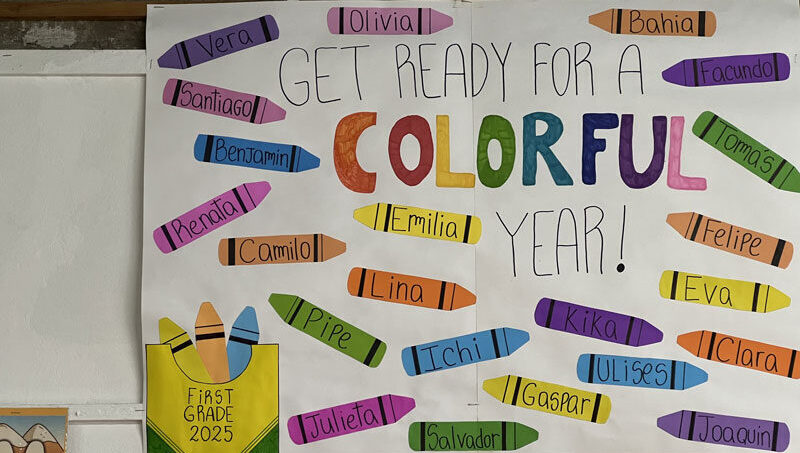 Vera
Olivia
Bahia
GET READY FOR A
Facundo
Santiago
COLORFUL
Tomás
Benjamin
Renata
Emilia
YEAR!
Felipe
Camilo
Lina
Eva
Pipe
Kika
Ichi
Clara
Ulises
Gaspar
FIRST
GRADE
2025
Julieta
Salvador
Joaquin